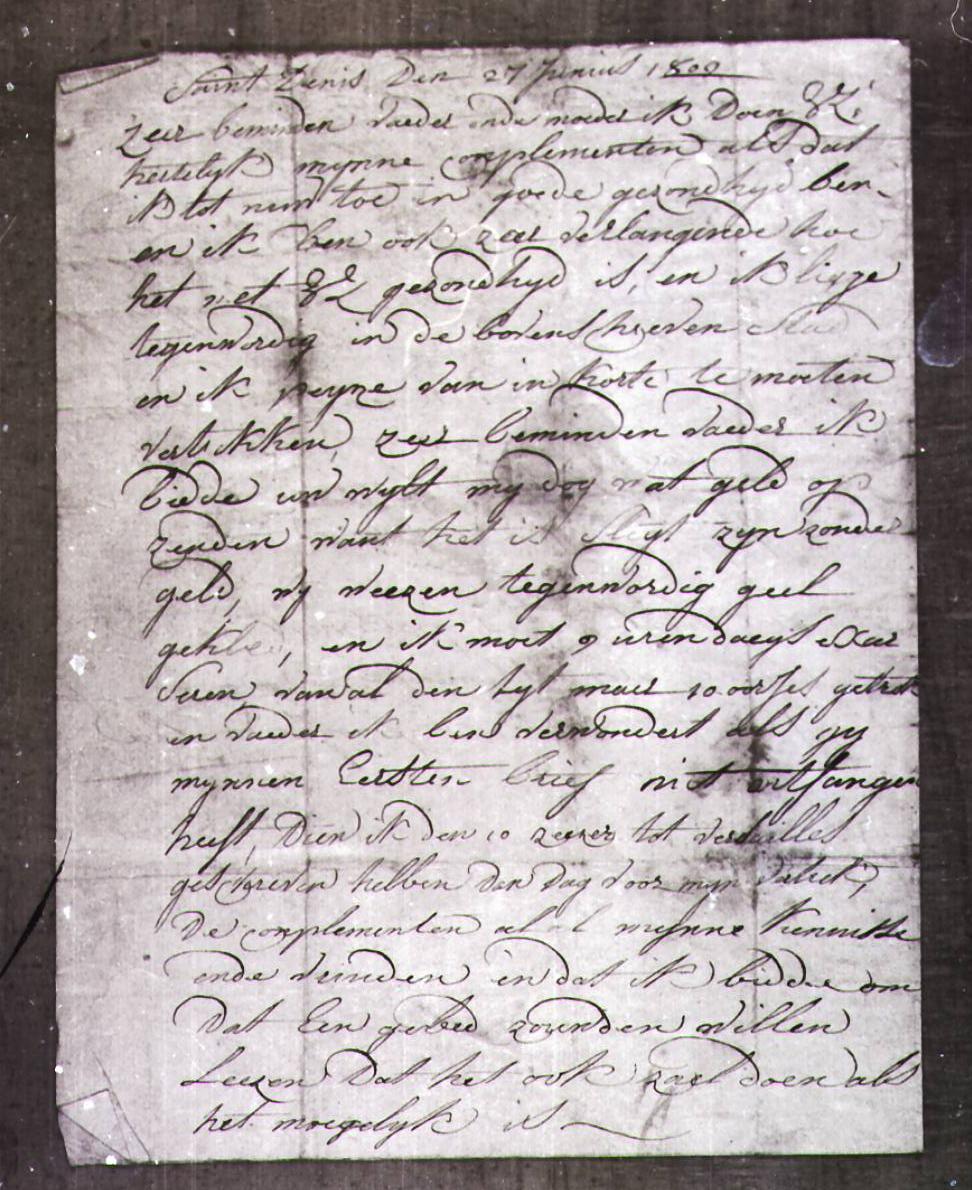 Saint Denis Den 27 Junius 1809
zeer beminden Vaeder ende moeder ik Doen UE:
hertelyk mynne complementen als dat
ik tot nun toe in goede gezondhyd ben
en ik ben ook zeer verlangende hoe
het met UE gezondhyd is, en ik ligge
tegenwordig in de bovenschreven Stad
en ik peyze van in korte te moeten
vertrikken, zeer beminden Vaeder ik
biede uw wylt my dog wat geld op
zenden want het is slegt zyn zonder
geld, wy weezen tegenwordig geel
en ik moet 9 uren daegs Exer
seren, van al den tyt maer 10 oorses getrok
en Vaeder ik ben verwondert als gy
mynnen Eersten brief niet ontfangen
heeft, Dien ik den 10 tot Versailles
geschreven hebben den Dag voor myn
De complementen al mynne kennisse
ende vrinden en dat ik bidde om
Dat Een gebed zounden willen
Leezen Dat het ook zael doen als
het moegelyk is